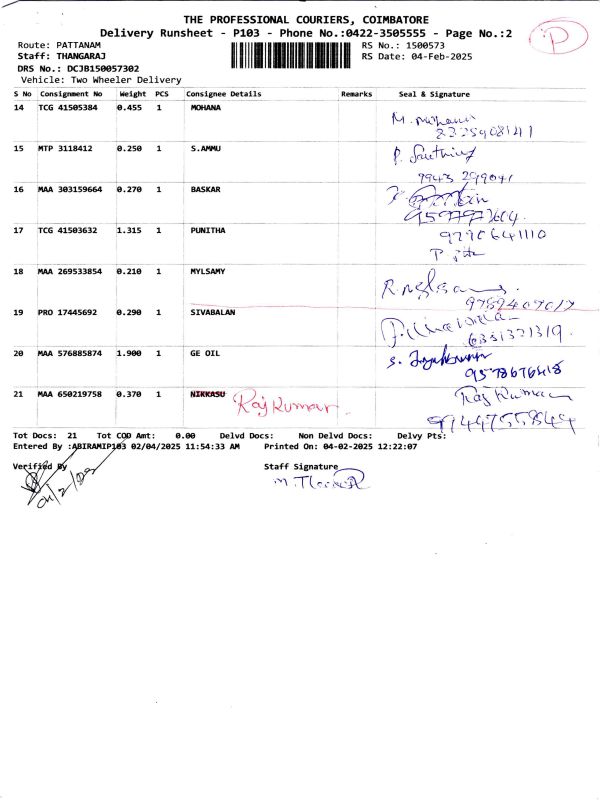 THE PROFESSIONAL COURIERS, COIMBATORE
Delivery Runsheet - P103 - Phone No.:0422-3505555 - Page No.:2
P
Route: PATTANAM RS No.: 1500573
Staff: THANGARAJ RS Date: 04-Feb-2025
DRS No.: DCJB150057302
Vehicle: Two Wheeler Delivery
S No Consignment No Weight PCS Consignee Details Remarks Seal & Signature
14 TCG 41505384 0.455 1 MOHANA
15 MTP 3118412 0.250 1 S.AMMU
9943 299041
16 MAA 303159664 0.270 1 BASKAR
17 TCG 41503632 1.315 1 PUNITHA
9790641110
18 MAA 269533854 0.210 1 MYLSAMY
19 PRO 17445692 0.290 1 SIVABALAN
6351371319
20 MAA 576885874 1.900 1 GE OIL
9578676418
21 MAA 650219758 0.370 1 NIKKASU Raj Kumar Raj Kumar
Tot Docs: 21 Tot COD Amt: 0.00 Delvd Docs: Non Delvd Docs: Delvy Pts:
Entered By :ABIRAMIP103 02/04/2025 11:54:33 AM Printed On: 04-02-2025 12:22:07
Verified By Staff Signature